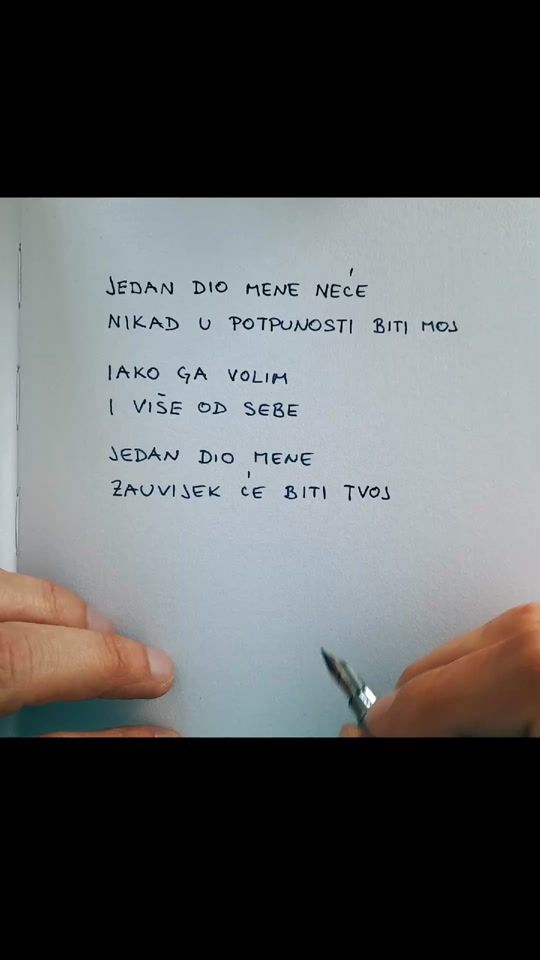 JEDAN DIO MENE NEĆE
NIKAD U POTPUNOSTI BITI MOJ
IAKO GA VOLIM
I VIŠE OD SEBE
JEDAN DIO MENE
ZAUVIJEK ĆE BITI TVOJ